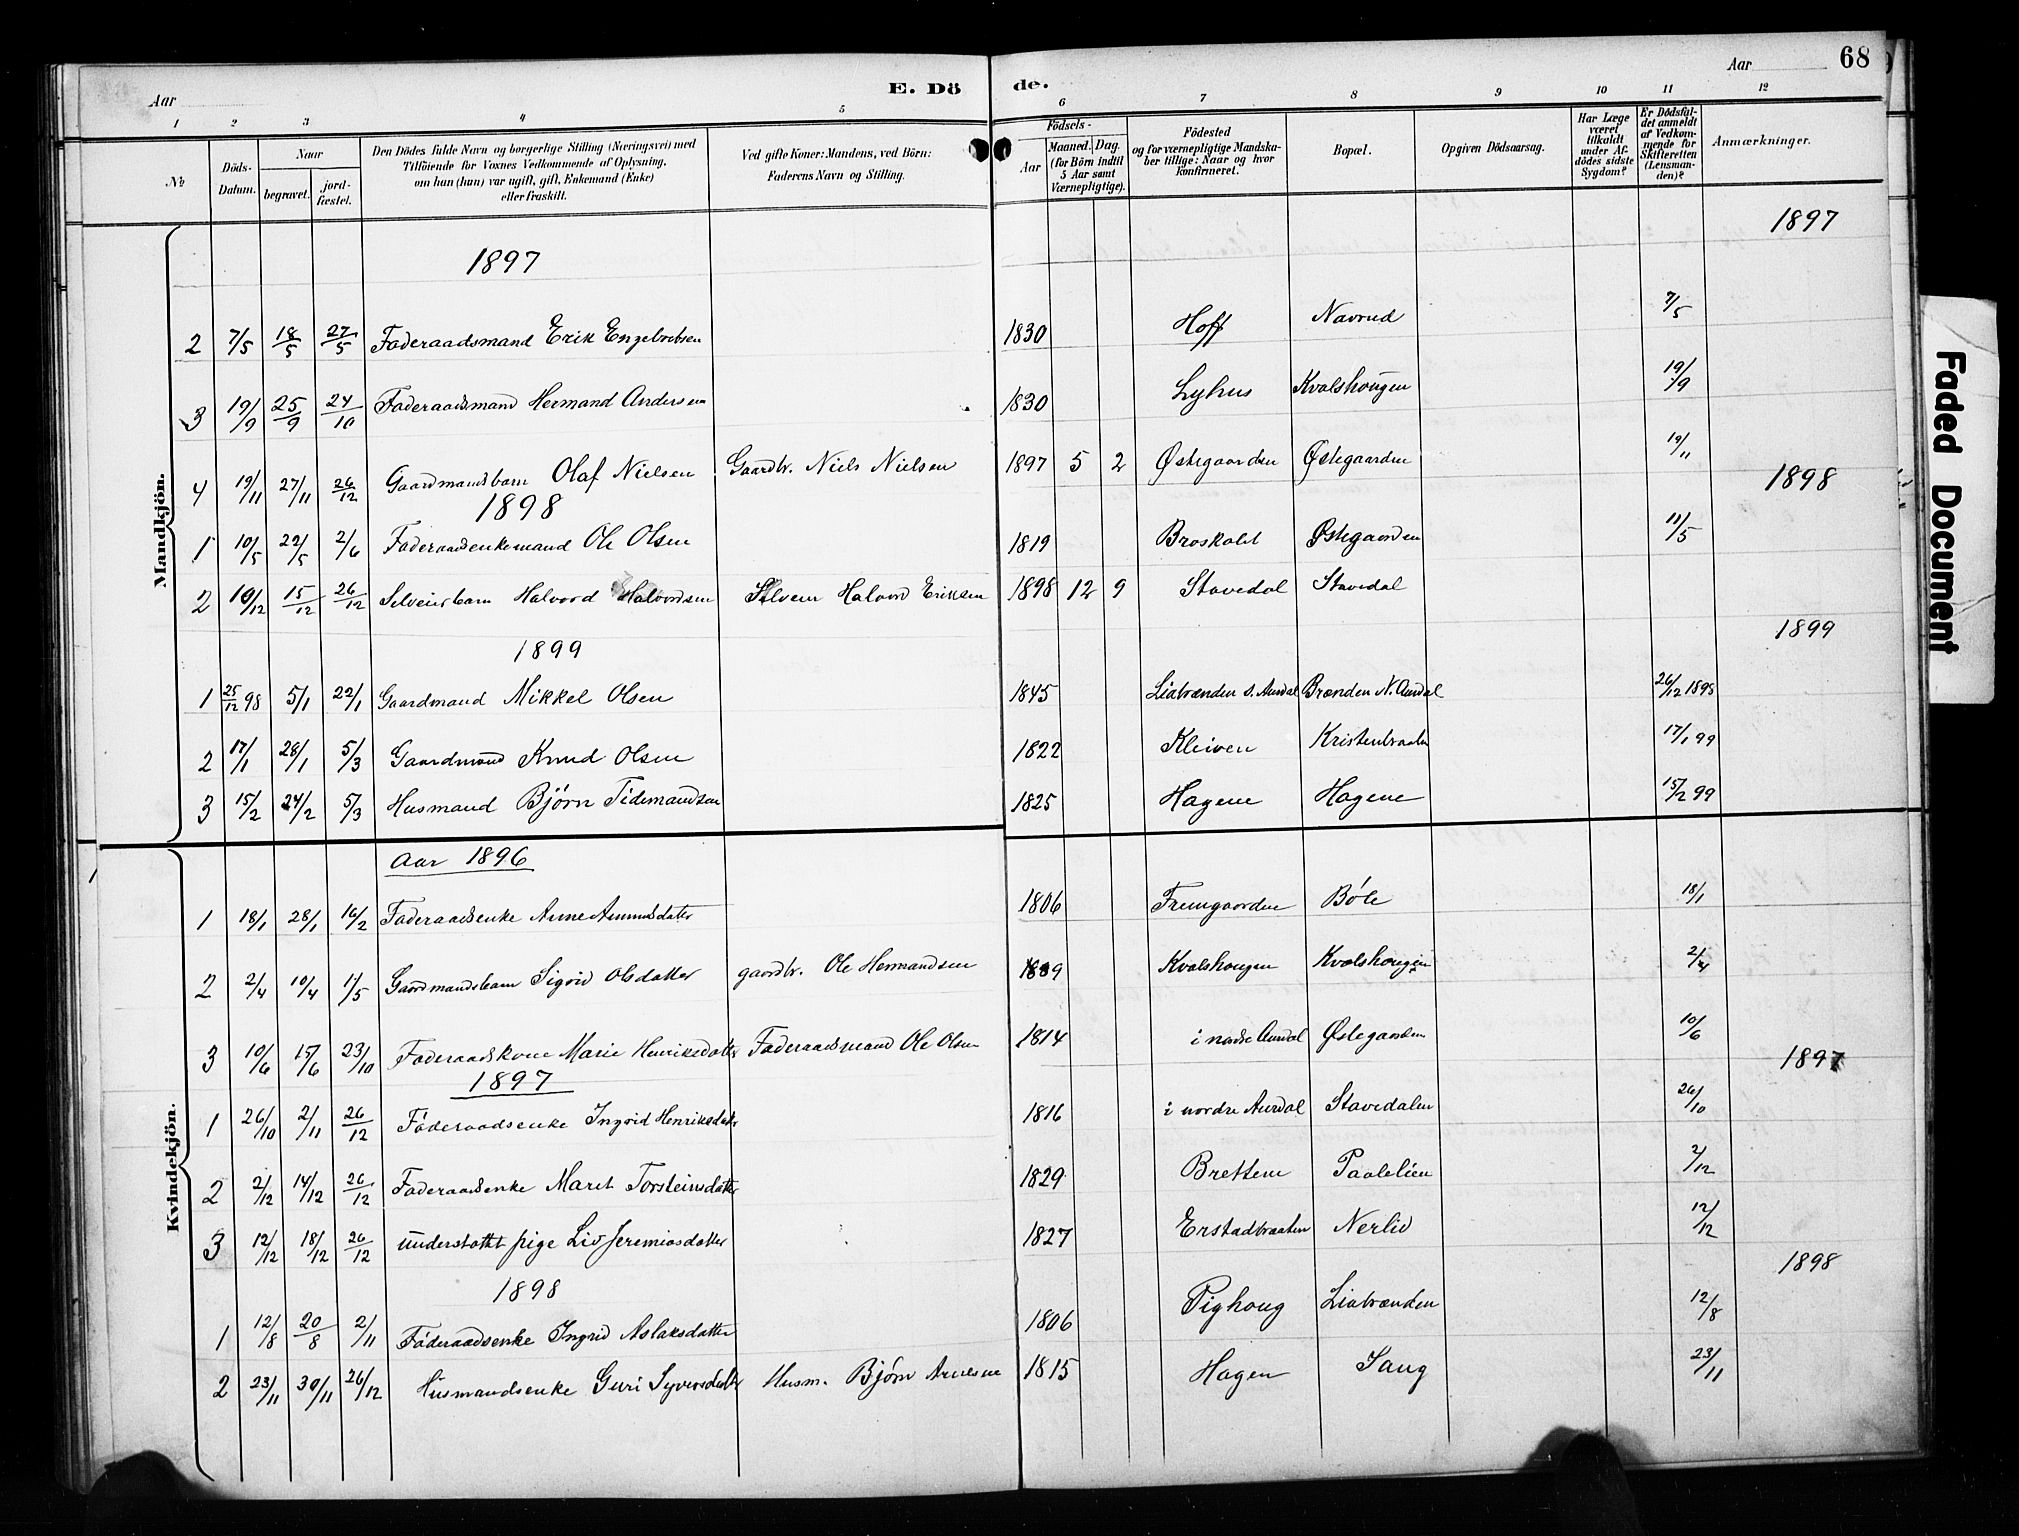 68
Aar
E. Dö
de.
Aar
1 2 3 4 5 6 7 8 9 10 11 12
№
Döds-Datum.
Naar
begravet.
jord-fæstet.
Den Dödes fulde Navn og borgerlige Stilling (Næringsvei) med
Tilföiende for Voxnes Vedkommende af Oplysning,
om han (hun) var ugift, gift, Enkemand (Enke)
eller fraskilt.
Ved gifte Koner: Mandens, ved Börn:
Faderens Navn og Stilling.
Födsels-
Aar
Maaned. Dag.
(for Börn indtil
5 Aar samt
Værnepligtige).
Födested
og for værnepligtige Mandska-
ber tillige: Naar og hvor
konfirmeret.
Bopæl.
Opgiven Dödsaarsag.
Har Læge
været
tilkaldt
under Af-
dödes sidste
Sygdom?
Er Dödsfal-
det anmeldt
af Vedkom-
mende for
Skifteretten
(Lensman-
den)?
Anmærkninger.
Mandkjön.
1897 1897
2 7/5 18/5 27/5 Faderaadsmand Erik Engebretsen 1830 Hoff Navrud 7/5
3 19/9 25/9 24/10 Faderaadsmand Hermand Andersen 1830 Lyhus Kvalshougen 19/9
4 19/11 27/11 26/12 Gaardmandsbarn Olaf Nielsen Gaardbr. Niels Nielsen 1897 5 2 Østegaarden Østegaarden 19/11
1898 1898
1 10/5 22/5 2/6 Faderaadsenkemand Ole Olsen 1819 Broskald Østegaarden 11/5
2 10/12 15/12 26/12 Selveierbarn Halvord Halvordsen Selveier Halvor Eriksen 1898 12 9 Stavedal Stavedal
1899 1899
1 25/12 98 5/1 22/1 Gaardmand Mikkel Olsen 1845 Liabrænden s. Aurdal Brænden N. Aurdal 26/12 1898
2 17/1 28/1 5/3 Gaardmand Knud Olsen 1822 Kleiven Kristenbraaten 17/1 99
3 15/2 24/2 5/3 Husmand Bjørn Tidemandsen 1825 Hagene Hagene 15/2 99
Kvindekjön.
Aar 1896
1 18/1 28/1 16/2 Faderaadsenke Anne Amundsdatter 1806 Fremgaarden Bøle 18/1
2 2/4 10/4 1/5 Gaardmandsbarn Sigrid Olsdatter gaardbr. Ole Hermandsen 1889 Kvalshougen Kvalshougen 2/4
3 10/6 15/6 23/10 Faderaadskone Marie Henriksdatter Faderaadsmand Ole Olsen 1814 i nordre Aurdal Østegaarden 10/6
1897 1897
1 26/10 2/11 26/12 Faderaadsenke Ingrid Henriksdatter 1816 i nordre Aurdal Stavedalen 26/10
2 2/12 14/12 26/12 Faderaadsenke Marit Torsteinsdatter 1829 Brettene Paalelien 2/12
3 12/12 18/12 26/12 understøttet pige Liv Jeremiasdatter 1827 Erstadbraaten Nerlid 12/12
1898 1898
1 12/8 20/8 2/11 Føderaadsenke Ingrid Aslaksdatter 1806 Pighoug Liabrænden 12/8
2 23/11 30/11 26/12 Husmandsenke Guri Syversdatter Husm. Bjørn Arnesen 1815 Hagen Saug 23/11
Faded Document